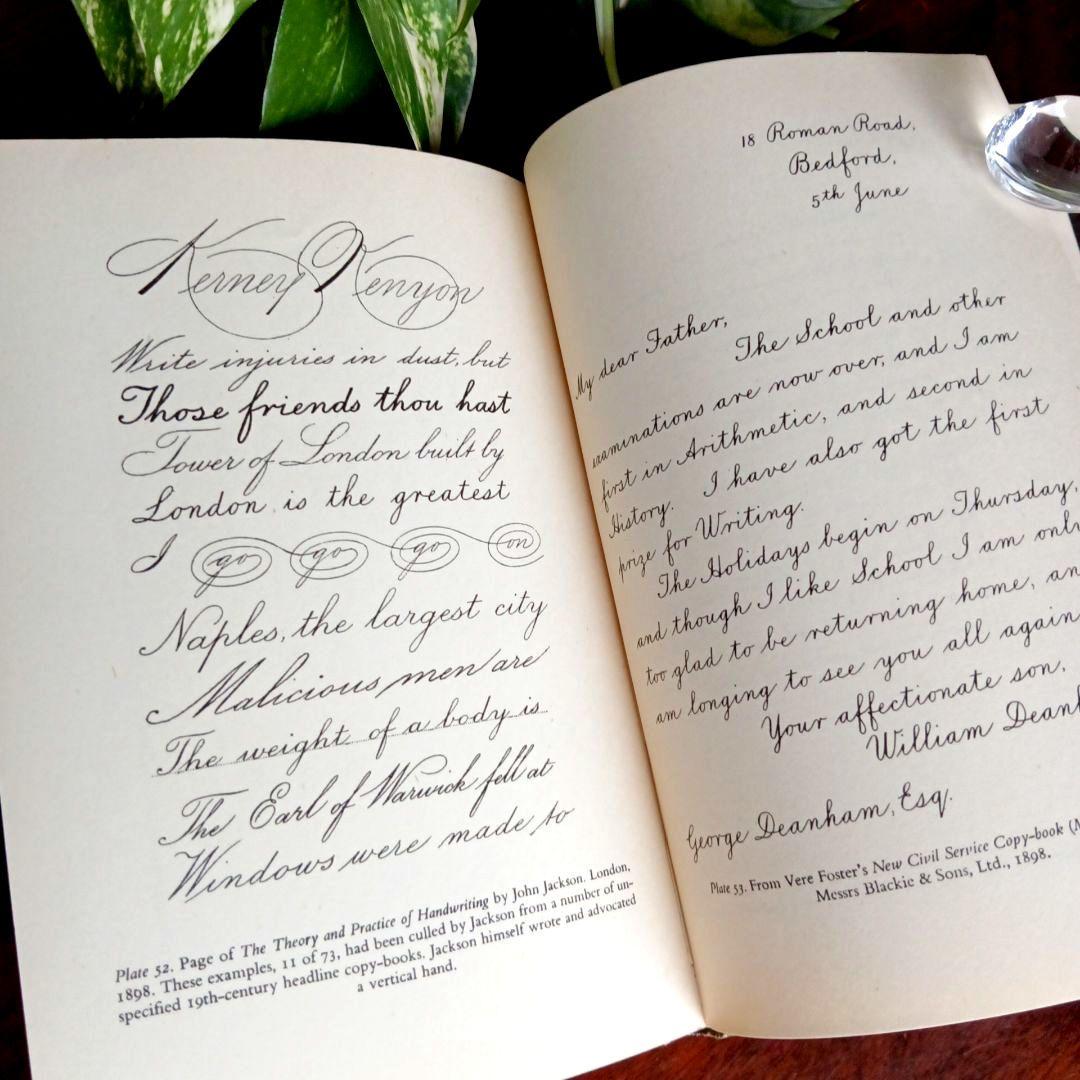 Kerney Kenyon
Write injuries in dust, but
Those friends thou hast
Tower of London built by
London is the greatest
I go go go on
Naples, the largest city
Malicious men are
The weight of a body is
The Earl of Warwick fell at
Windows were made to
Plate 52. Page of The Theory and Practice of Handwriting by John Jackson. London,
1898. These examples, 11 of 73, had been culled by Jackson from a number of un-
specified 19th-century headline copy-books. Jackson himself wrote and advocated
a vertical hand.
18 Roman Road,
Bedford,
5th June
My dear Father,
The School and other
examinations are now over, and I am
first in Arithmetic, and second in
History. I have also got the first
prize for Writing.
The Holidays begin on Thursday,
and though I like School I am only
too glad to be returning home, an
am longing to see you all again
Your affectionate son,
William Deanh
George Deanham, Esq.
Plate 53. From Vere Foster's New Civil Service Copy-book (M
Messrs Blackie & Sons, Ltd., 1898.